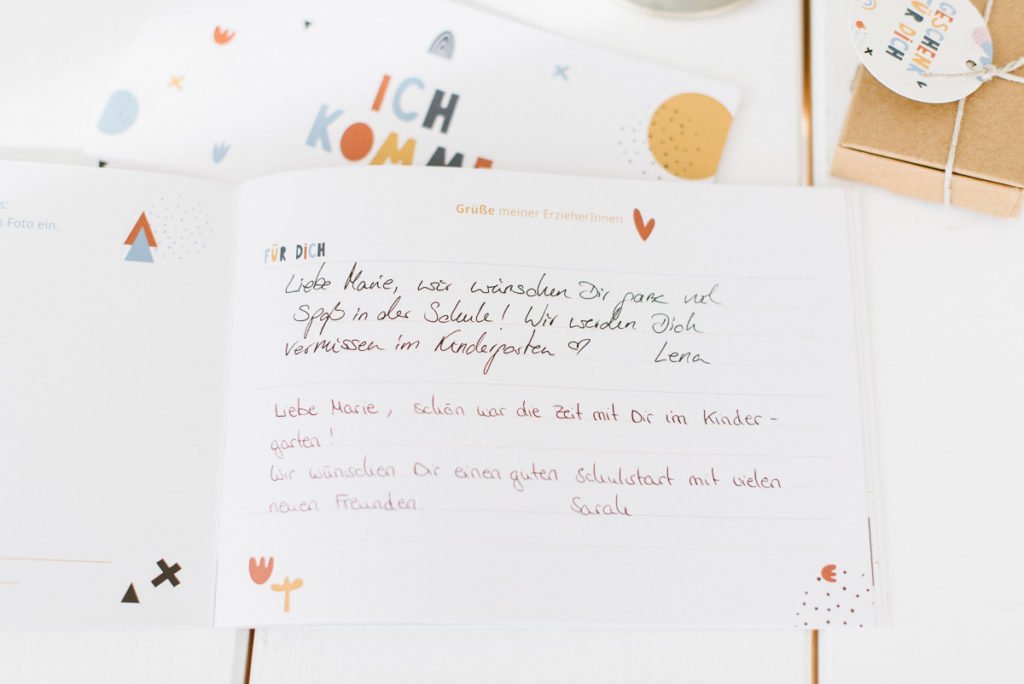 GESCHENK
FÜR DICH
ICH
KOMM
s:
n Foto ein.
Grüße meiner ErzieherInnen
FÜR DICH
Liebe Marie, wir wünschen Dir ganz viel
Spaß in der Schule! Wir werden Dich
vermissen im Kindergarten ♡ Lena
Liebe Marie, schön war die Zeit mit Dir im Kinder-
garten!
Wir wünschen Dir einen guten Schulstart mit vielen
neuen Freunden. Sarah